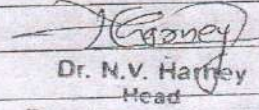 Dr. N.V. Harney
Head